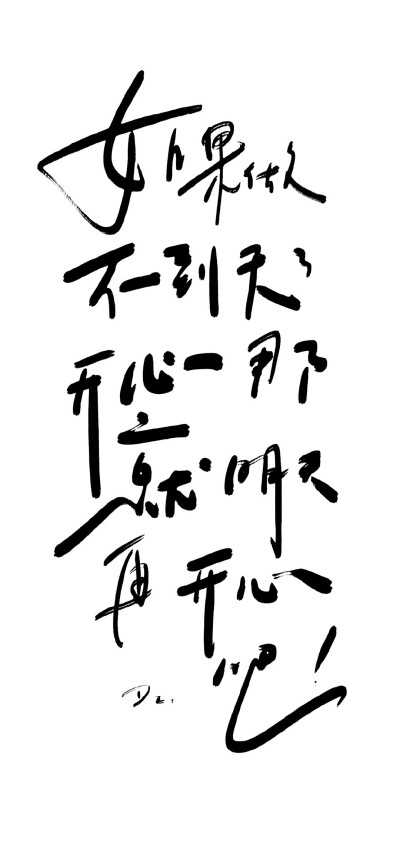 如果做
不到天天
开心一那
之就明天
再开心
吧！
Dz.